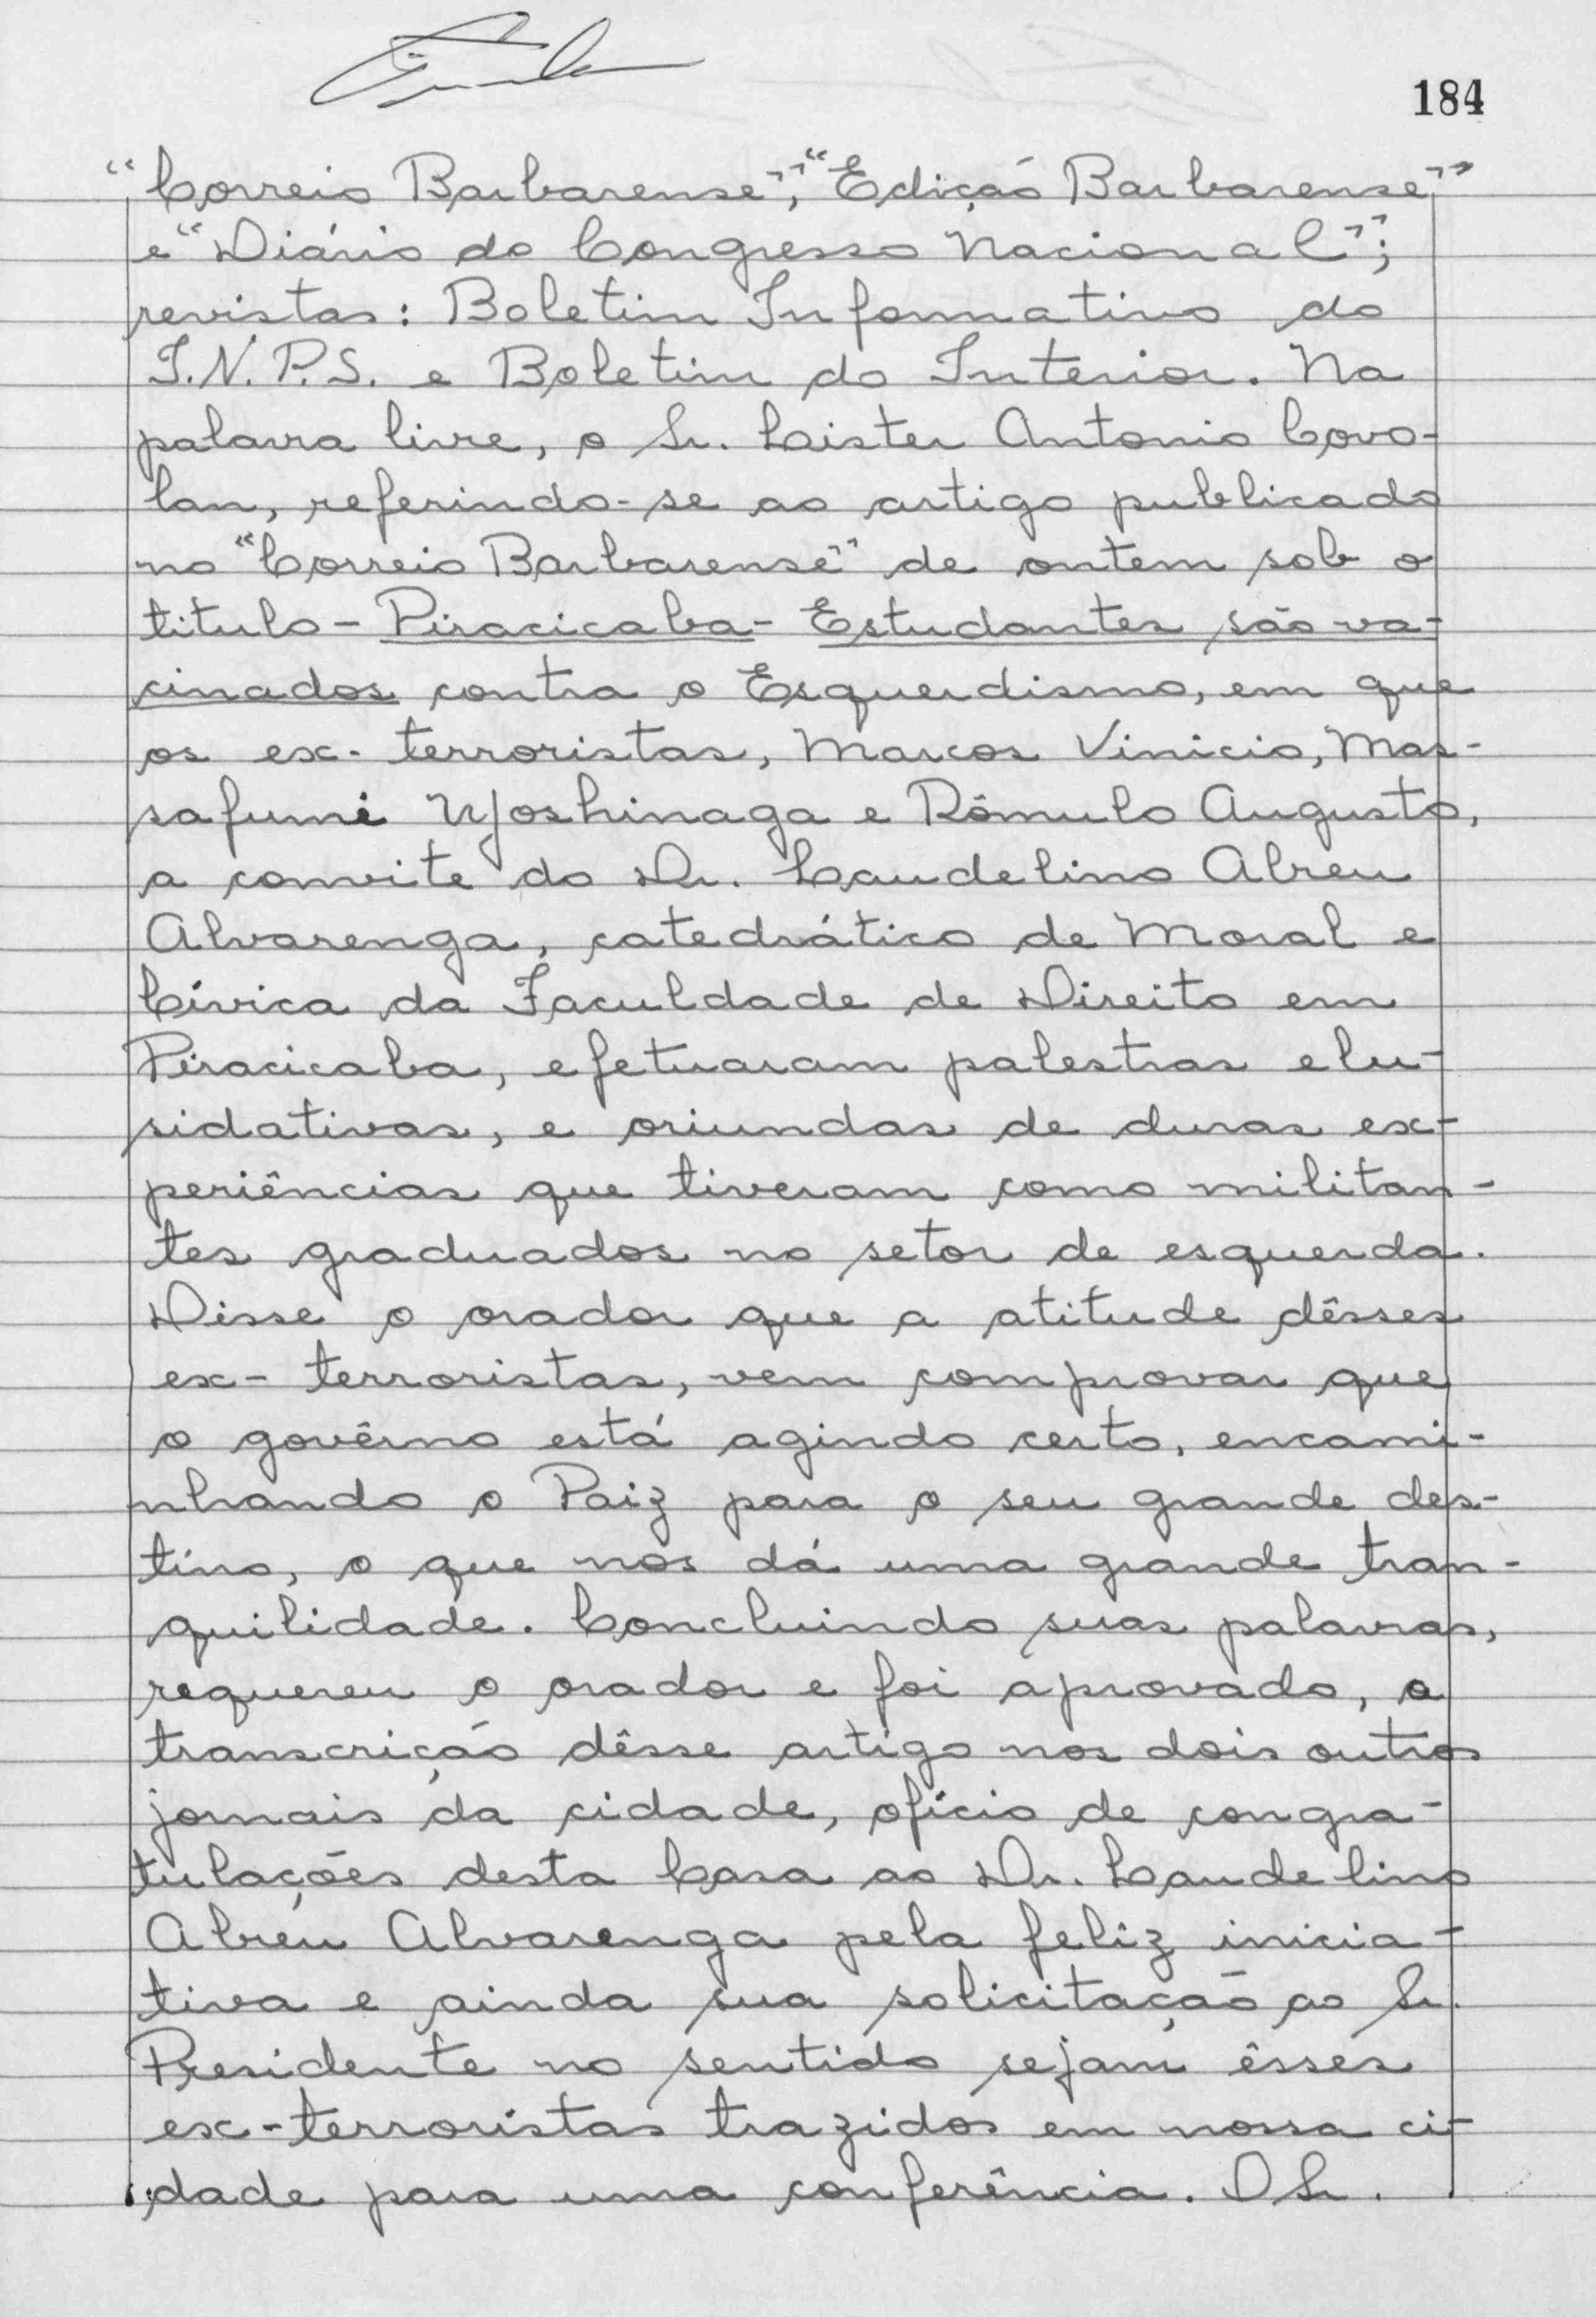 184
"Correio Barbarense", "Edição Barbarense"
e "Diário do Congresso Nacional";
revistas: Boletim Informativo do
I.N.P.S. e Boletim do Interior. Na
palavra livre, o Sr. Lister Antonio Covo-
lan, referindo-se ao artigo publicado
no "Correio Barbarense" de ontem sob o
titulo - Piracicaba - Estudantes são va-
cinados contra o Esquerdismo, em que
os ex-terroristas, Marcos Vinicio, Mas-
safumi Yoshinaga e Rômulo Augusto,
a convite do Dr. Laudelino Abreu
Alvarenga, catedrático de Moral e
Cívica da Faculdade de Direito em
Piracicaba, efetuaram palestras elu-
sidativas, e oriundas de duras ex-
periências que tiveram como militan-
tes graduados no setor de esquerda.
Disse o orador que a atitude dêsses
ex-terroristas, vem comprovar que
o govêrno está agindo certo, encami-
nhando o Paiz para o seu grande des-
tino, o que nos dá uma grande tran-
quilidade. Concluindo suas palavras,
requereu o orador e foi aprovado, a
transcrição dêsse artigo nos dois outros
jornais da cidade, ofício de congra-
tulações desta Casa ao Dr. Laudelino
Abreu Alvarenga pela feliz inicia-
tiva e ainda sua solicitação ao Sr.
Presidente no sentido sejam êsses
ex-terroristas trazidos em nossa ci-
dade para uma conferência. O Sr.